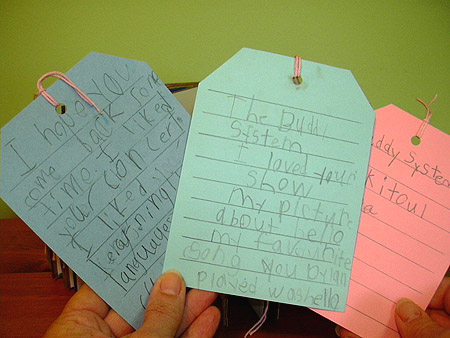 I hope you
come back som
time. I liked
your concert
I liked the
learning
languages
The Budy
System
I loved your
show
my picture
about hello
my favourite
song you Dylan
played was hello
ddy System
kitoul
a